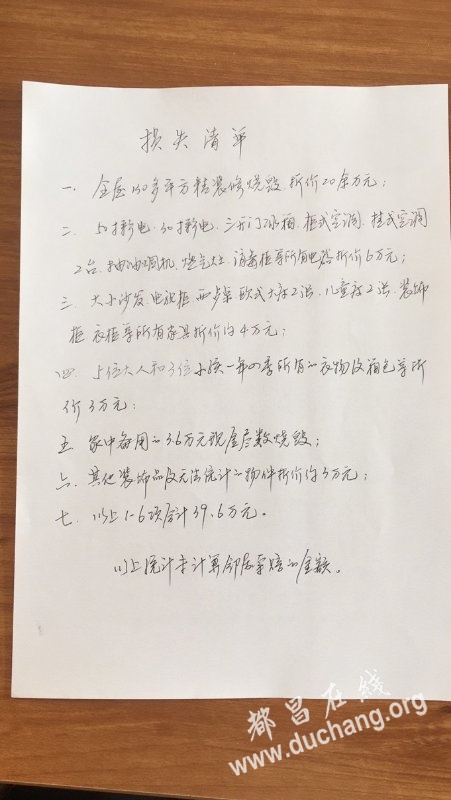 损失清单
一、全屋130多平方精装修烧毁,折价20余万元;
二、50寸彩电、30寸彩电、三开门冰箱、柜式空调、挂式空调
2台、抽油烟机、燃气灶、消毒柜等所有电器折价6万元;
三、大小沙发、电视柜、西桌、欧式大床2张、儿童床2张、装饰
柜、衣柜等所有家具折价约4万元;
四、5位大人和3位小孩一年四季所有的衣物及箱包等折
价3万元;
五、家中备用的3.6万元现金尽数烧毁;
六、其他装饰品及无法统计的物件折价约3万元;
七、以上1-6项合计39.6万元。
以上统计未计算邻居索赔的金额。
都昌在线
www.duchang.org